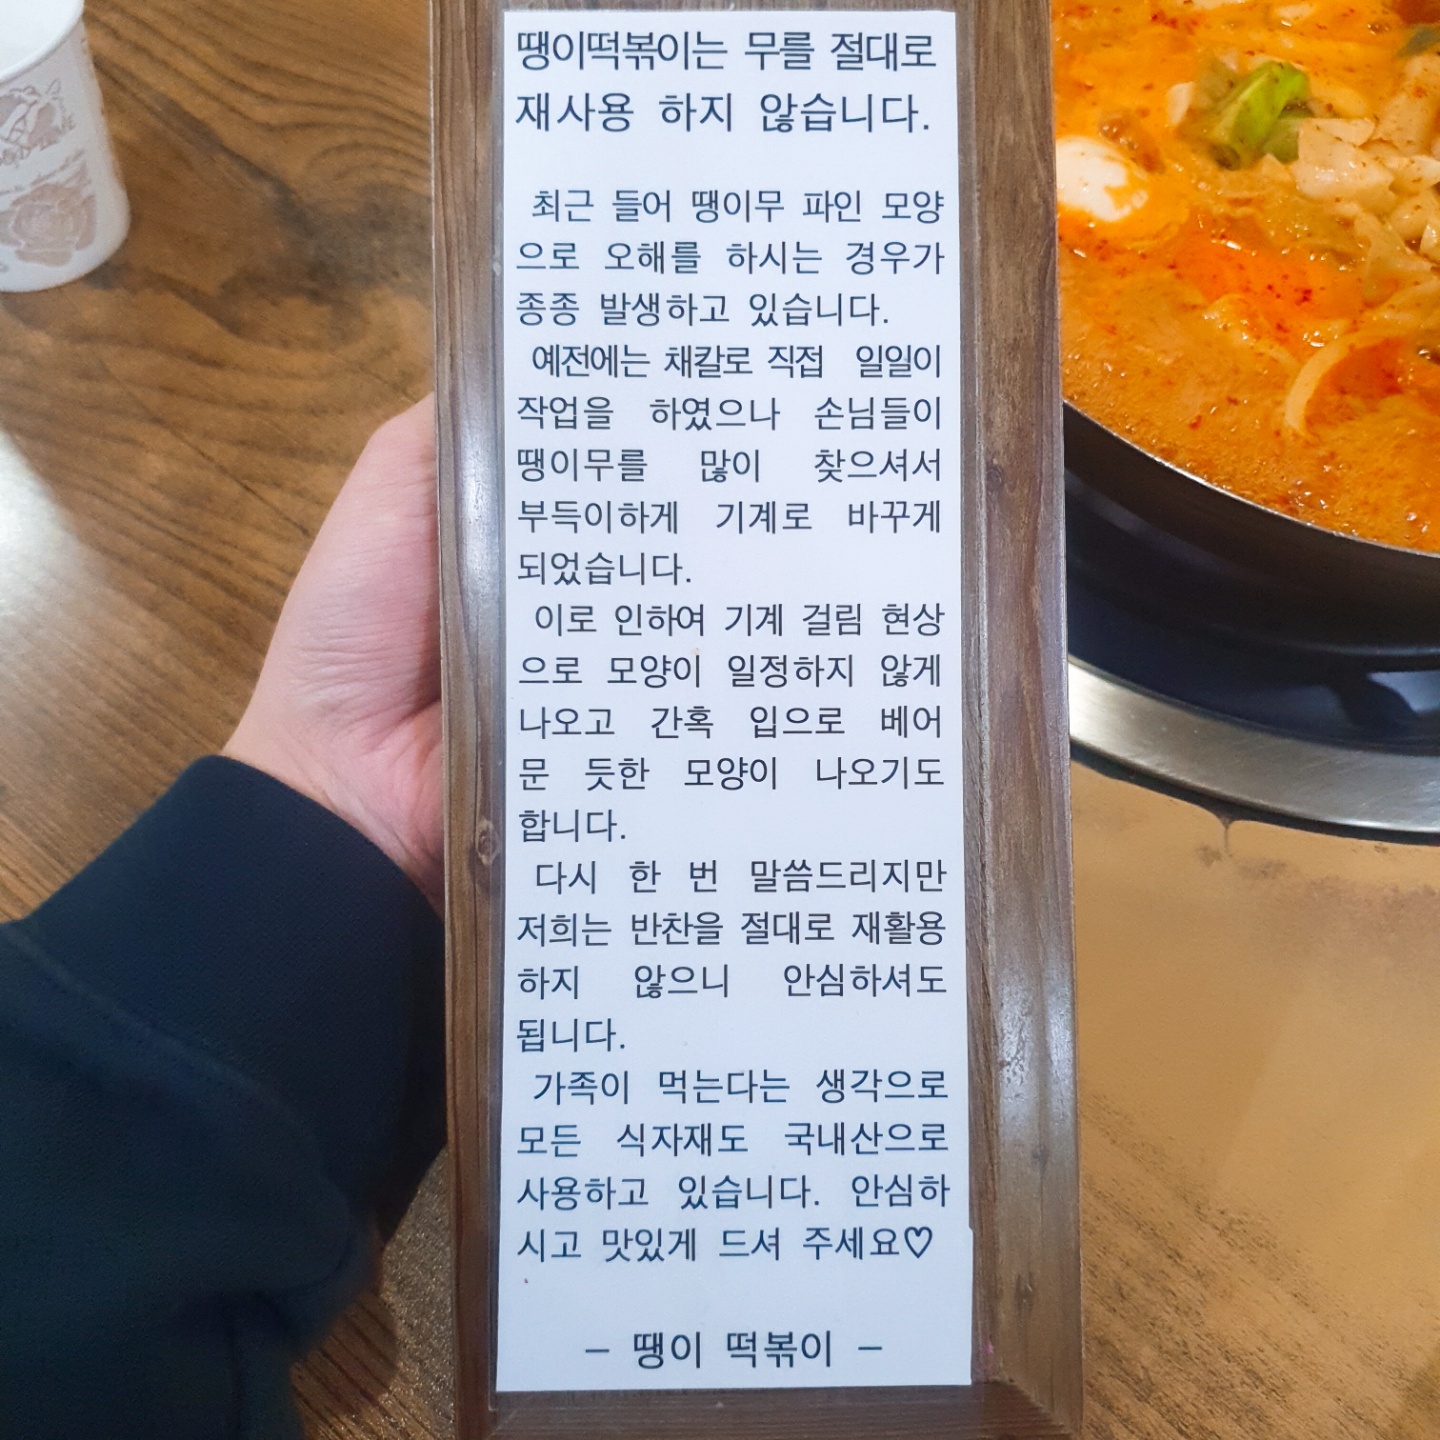 땡이떡볶이는 무를 절대로
재사용 하지 않습니다.
최근 들어 땡이무 파인 모양
으로 오해를 하시는 경우가
종종 발생하고 있습니다.
예전에는 채칼로 직접 일일이
작업을 하였으나 손님들이
땡이무를 많이 찾으셔서
부득이하게 기계로 바꾸게
되었습니다.
이로 인하여 기계 걸림 현상
으로 모양이 일정하지 않게
나오고 간혹 입으로 베어
문 듯한 모양이 나오기도
합니다.
다시 한 번 말씀드리지만
저희는 반찬을 절대로 재활용
하지 않으니 안심하셔도
됩니다.
가족이 먹는다는 생각으로
모든 식자재도 국내산으로
사용하고 있습니다. 안심하
시고 맛있게 드셔 주세요♡
- 땡이 떡볶이 -